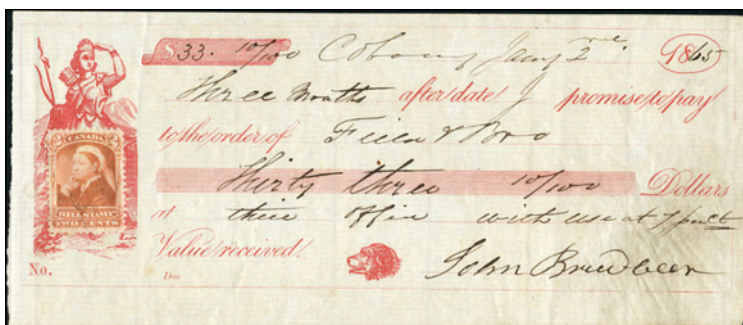 $33. 10/100 Cobourg Jany 2nd 1865
Three Months after date I promise to pay
to the order of Field & Bro
Thirty three 10/100 Dollars
at their office with use at 7 per ct
Value received.
John
No.
Due
2 CANADA 2
BILL STAMP
TWO CENTS